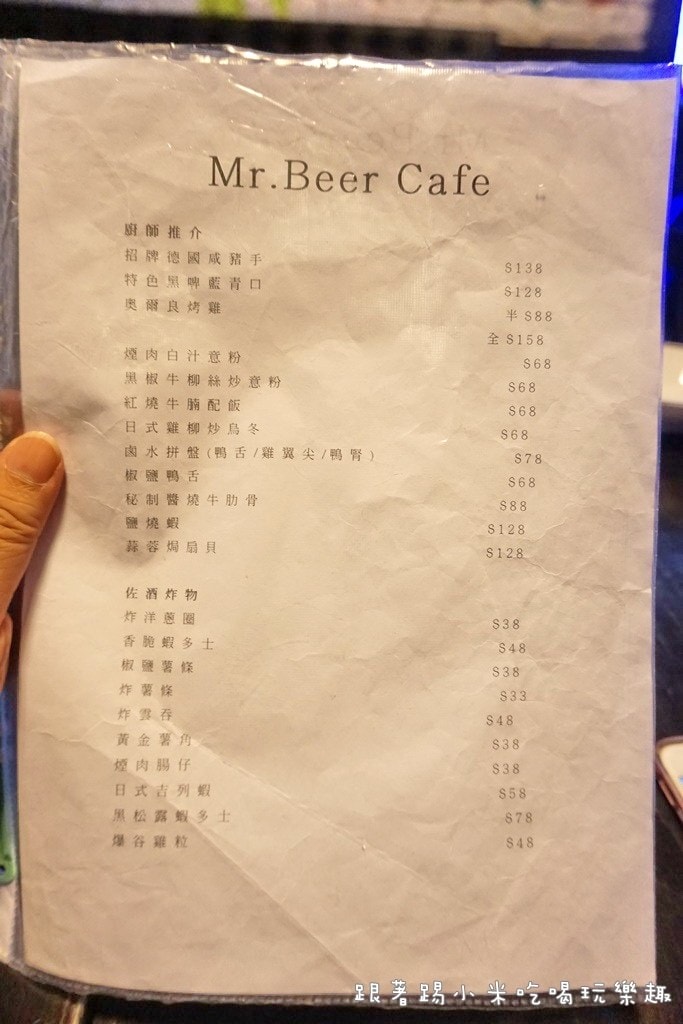 Mr.Beer Cafe
廚師推介
招牌德國咸豬手 $138
特色黑啤藍青口 $128
奧爾良烤雞 半 $88
全 $158
煙肉白汁意粉 $68
黑椒牛柳絲炒意粉 $68
紅燒牛腩配飯 $68
日式雞柳炒烏冬 $68
鹵水拼盤(鴨舌/雞翼尖/鴨腎) $78
椒鹽鴨舌 $68
秘制醬燒牛肋骨 $88
鹽燒蝦 $128
蒜蓉焗扇貝 $128
佐酒炸物
炸洋蔥圈 $38
香脆蝦多士 $48
椒鹽薯條 $38
炸薯條 $33
炸雲吞 $48
黃金薯角 $38
煙肉腸仔 $38
日式吉列蝦 $58
黑松露蝦多士 $78
爆谷雞粒 $48
跟著踢小米吃喝玩樂趣